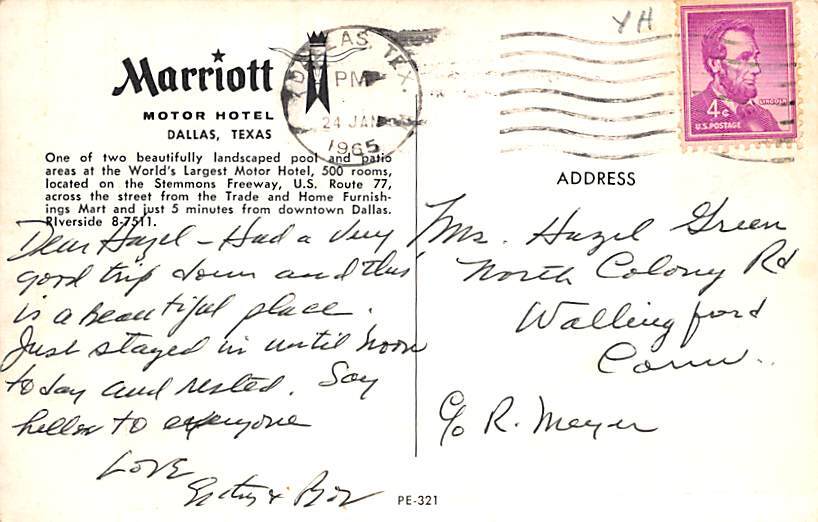 YH
Marriott
MOTOR HOTEL
DALLAS, TEXAS
DALLAS, TEX.
PM
24 JAN
1965
LINCOLN
4¢
U.S. POSTAGE
One of two beautifully landscaped pool and patio
areas at the World's Largest Motor Hotel, 500 rooms,
located on the Stemmons Freeway, U.S. Route 77,
across the street from the Trade and Home Furnish-
ings Mart and just 5 minutes from downtown Dallas.
RIverside 8-7511.
Dear Hazel - Had a very
good trip down and this
is a beautiful place.
Just stayed in until noon
today and rested. Say
hello to everyone
Love
&
ADDRESS
Mrs. Hazel Green
North Colony Rd
Wallingford
Conn.
c/o R. Meyer
PE-321